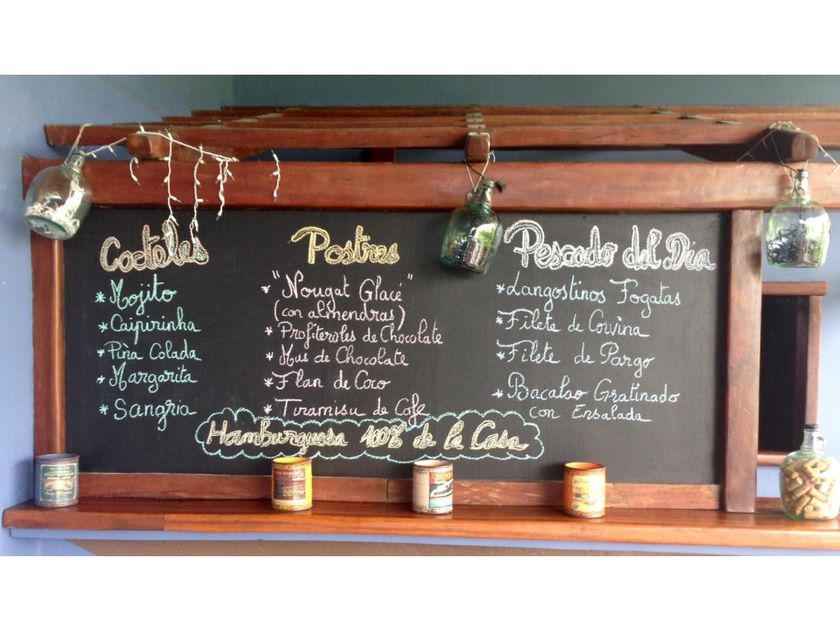 Cocteles
* Mojito
* Caipirinha
* Piña Colada
* Margarita
* Sangria
Postres
* "Nougat Glacé"
(con almendras)
* Profiteroles de Chocolate
* Mus de Chocolate
* Flan de Coco
* Tiramisu de Cafe
Pescado del Dia
* Langostinos Fogatas
* Filete de Corvina
* Filete de Pargo
* Bacalao Gratinado
con Ensalada
Hamburguesa 100% de la Casa